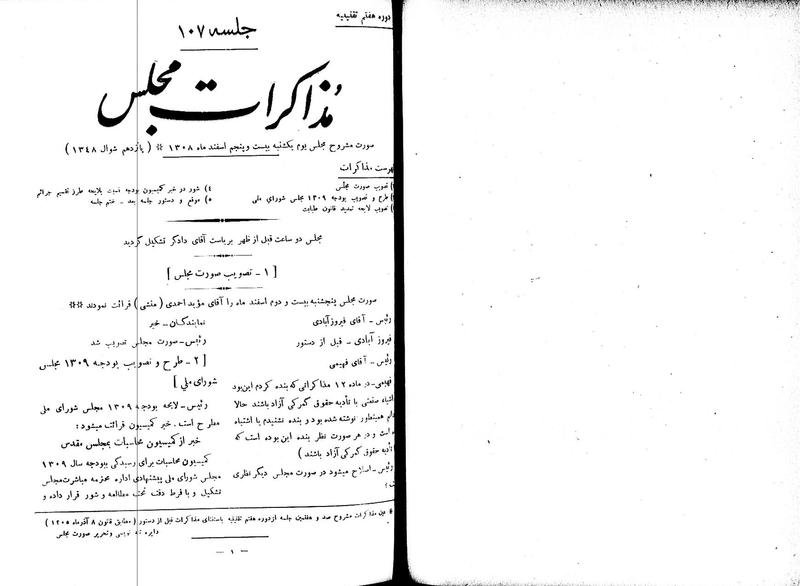 دوره هفتم تقنینیه
جلسه ۱۰۷
مُذاکرات مجلس
صورت مشروح مجلس یوم یکشنبه بیست وپنجم اسفند ماه ۱۳۰۸ ** ( پانزدهم شوال ۱۳۴۸ )
فهرست مذاکرات
۱) تصویب صورت مجلس
۲) طرح و تصویب بودجه ۱۳۰۹ مجلس شورای ملی
۳) تصویب لایحه تمدید قانون طبابت
۴) شور در خبر کمیسیون بودجه نسبت بلایحه طرز تقسیم جرائم
۵) موقع و دستور جلسه بعد - ختم جلسه
مجلس دو ساعت قبل از ظهر بریاست آقای دادگر تشکیل گردید
[ ۱ - تصویب صورت مجلس ]
صورت مجلس پنجشنبه بیست و دوم اسفند ماه را آقای مؤید احمدی ( منشی ) قرائت نمودند **
رئیس ـ آقای فیروزآبادی
فیروز آبادی ـ قبل از دستور
رئیس ـ آقای فهیمی
فهیمی ـ در ماده ۱۲ مذاکراتی که بنده کردم این بود
اشیاء صنعتی با تأدیه حقوق گمرکی آزاد باشند حالا
همینطور نوشته شده بود و بنده نشنیدم یا اشتباه
است و در هر صورت نظر بنده این بوده است که
تأدیه حقوق گمرکی آزاد باشند )
رئیس ـ اصلاح میشود در صورت مجلس دیگر نظری
نمایندگان ـ خیر
رئیس ـ صورت مجلس تصویب شد
[ ۲ ـ طرح و تصویب بودجه ۱۳۰۹ مجلس
شورای ملی ]
رئیس ـ لایحه بودجه ۱۳۰۹ مجلس شورای ملی
مطرح است . خبر کمیسیون قرائت میشود :
خبر از کمیسیون محاسبات بمجلس مقدس
کمیسیون محاسبات برای رسیدگی ببودجه سال ۱۳۰۹
مجلس شورای ملی پیشنهادی اداره محترمه مباشرت مجلس
تشکیل و با فرط دقت تحت مطالعه و شور قرار داده و
* عین مذاکرات مشروح صد و هفتمین جلسه از دوره هفتم تقنینیه باستثنای مذاکرات قبل از دستور ( مطابق قانون ۸ آذرماه ۱۳۰۵ )
دایره تند نویسی و تحریر صورت مجلس
ـ ۱ ـ